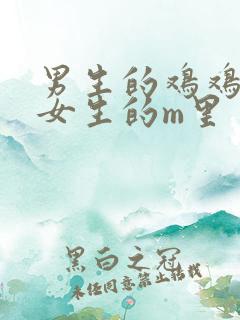 男生的鸡鸡
女生的m里
黑白之冠
未经同意禁止搭讪